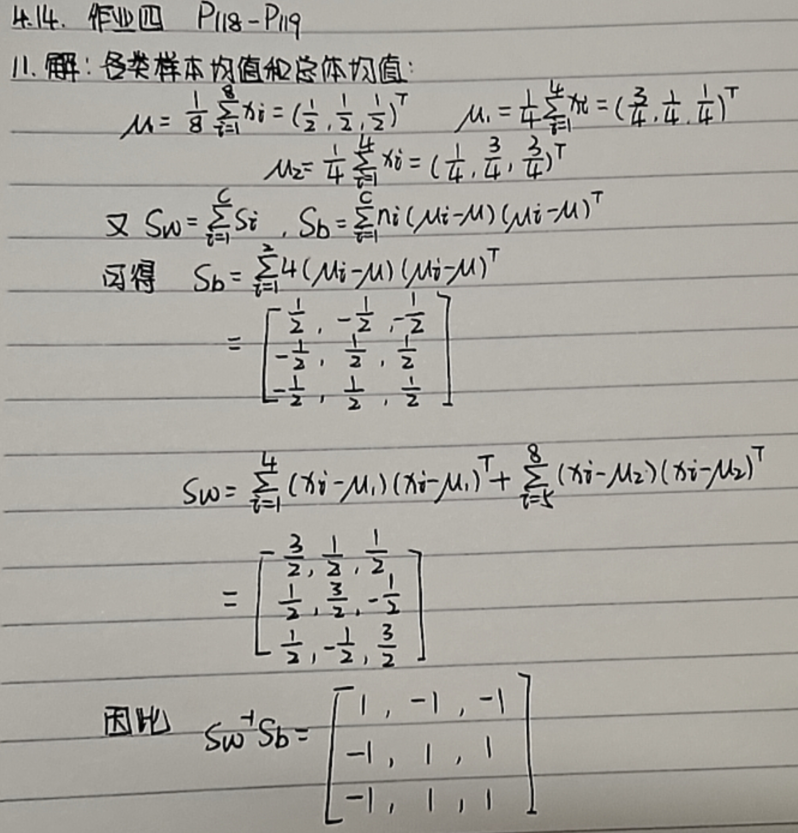 4.14. 作业四 P118-P119
11. 解: 各类样本均值和总体均值:
μ = 1/8 ∑_{i=1}^{8} xi = (1/2, 1/2, 1/2)^T μ1 = 1/4 ∑_{i=1}^{4} xi = (3/4, 1/4, 1/4)^T
μ2 = 1/4 ∑_{i=1}^{4} xi = (1/4, 3/4, 3/4)^T
又 Sw = ∑_{i=1}^{C} Si , Sb = ∑_{i=1}^{C} ni (μi-μ) (μi-μ)^T
可得 Sb = ∑_{i=1}^{2} 4 (μi-μ) (μi-μ)^T
= [ 1/2, -1/2, -1/2
-1/2, 1/2, 1/2
-1/2, 1/2, 1/2 ]
Sw = ∑_{i=1}^{4} (xi-μ1) (xi-μ1)^T + ∑_{i=5}^{8} (xi-μ2) (xi-μ2)^T
= [ 3/2, 1/2, 1/2
1/2, 3/2, -1/2
1/2, -1/2, 3/2 ]
因此 Sw^-1 Sb = [ 1, -1, -1
-1, 1, 1
-1, 1, 1 ]